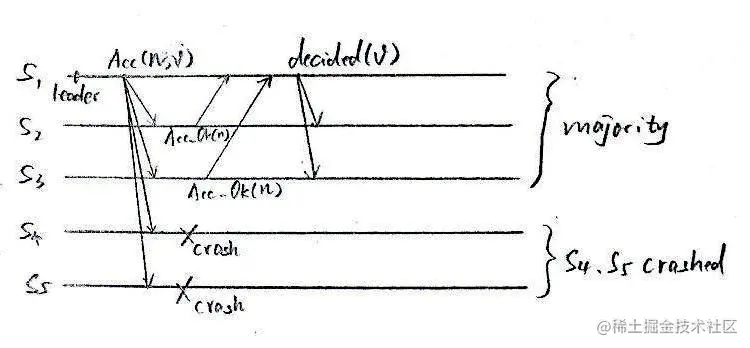 Acc(n,v)
decided(v)
S1
leader
S2
Acc-Ok(n)
majority
S3
Acc-Ok(n)
S4
crash
S4.S5 crashed
S5
crash
@稀土掘金技术社区